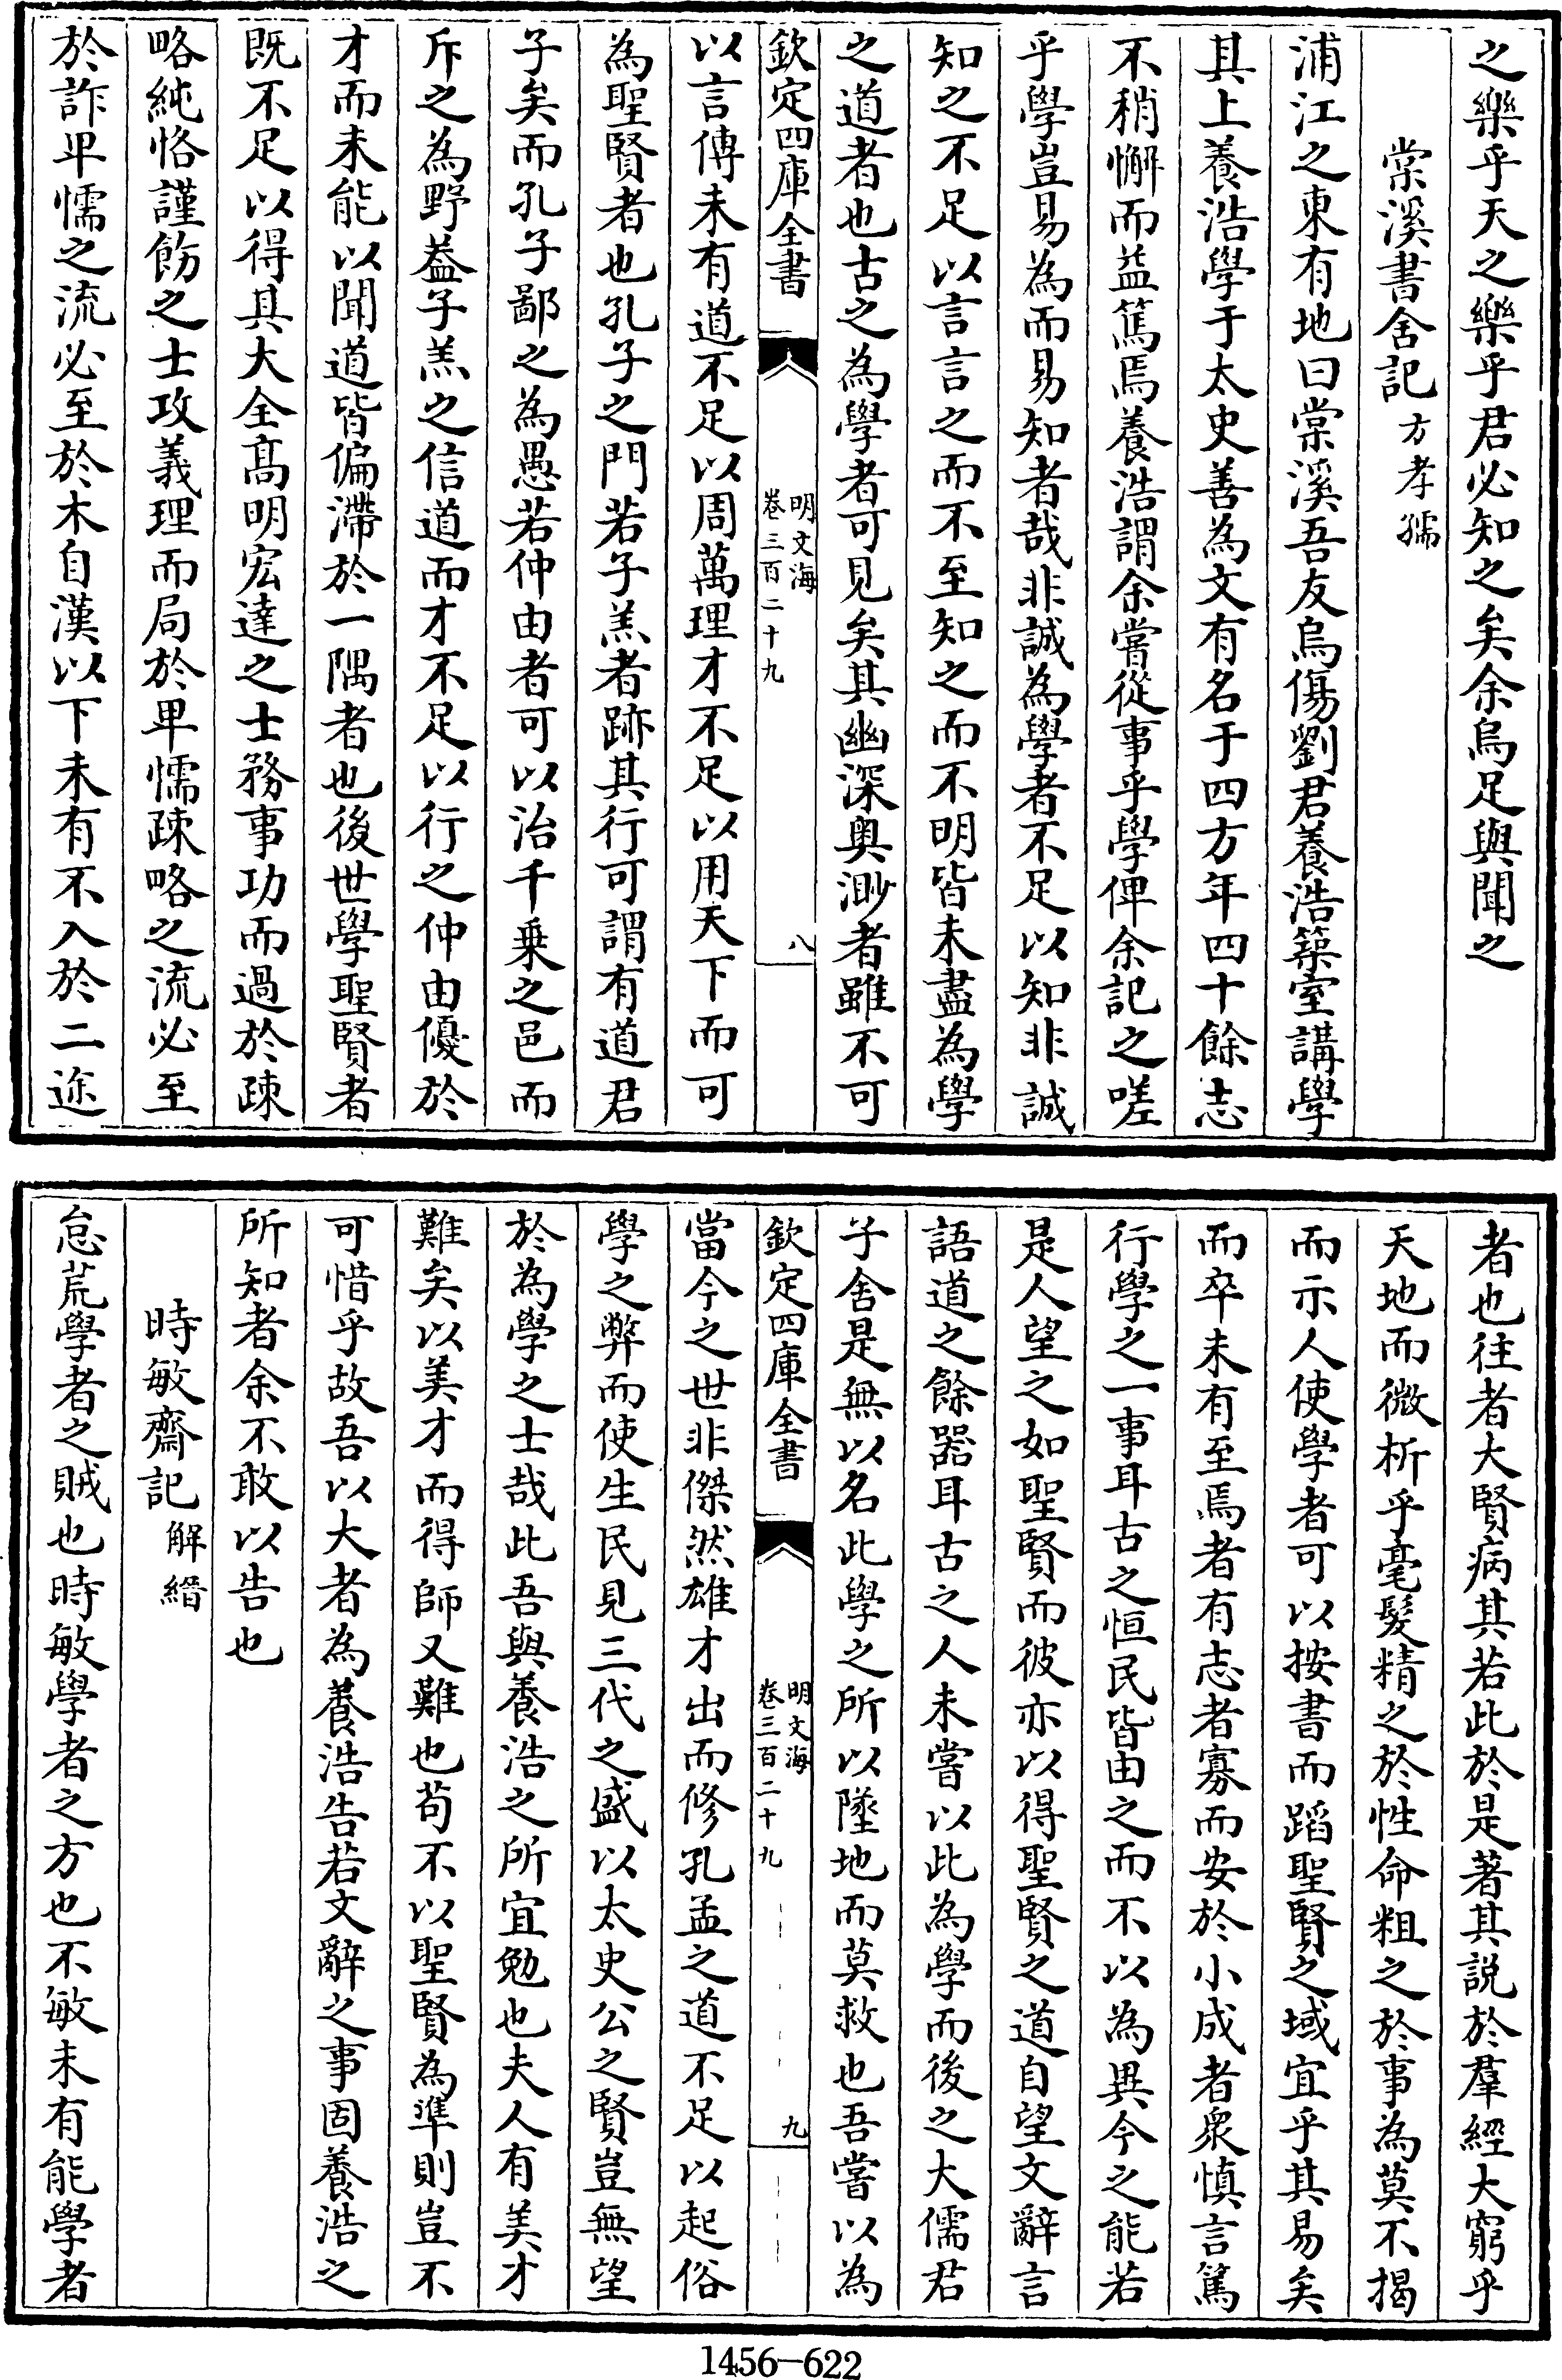 之樂乎天之樂乎君必知之矣余烏足與聞之
棠溪書舍記方孝孺
浦江之東有地曰棠溪吾友烏傷劉君養浩築室講學
其上養浩學于太史善為文有名于四方年四十餘志
不稍懈而益篤焉養浩謂余嘗從事乎學俾余記之嗟
乎學豈易為而易知者哉非誠為學者不足以知非誠
知之不足以言言之而不至知之而不明皆未盡為學
之道者也古之為學者可見矣其幽深奥渺者雖不可
欽定四庫全書
明文海
卷三百二十九
八
以言傳未有道不足以周萬理才不足以用天下而可
為聖賢者也孔子之門若子羔者跡其行可謂有道君
子矣而孔子鄙之為愚若仲由者可以治千乗之邑而
斥之為野葢子羔之信道而才不足以行之仲由優於
才而未能以聞道皆偏滯於一隅者也後世學聖賢者
既不足以得其大全髙明宏達之士務事功而過於疎
略純恪謹飭之士攻義理而局於卑懦疎略之流必至
於詐卑懦之流必至於木自漢以下未有不入於二途
者也往者大賢病其若此於是著其説於羣經大窮乎
天地而微析乎毫髮精之於性命粗之於事為莫不揭
而示人使學者可以按書而蹈聖賢之域宜乎其易矣
而卒未有至焉者有志者寡而安於小成者衆慎言篤
行學之一事耳古之恒民皆由之而不以為異今之能若
是人望之如聖賢而彼亦以得聖賢之道自望文辭言
語道之餘器耳古之人未嘗以此為學而後之大儒君
子舍是無以名此學之所以墜地而莫救也吾嘗以為
欽定四庫全書
明文海
卷三百二十九
九
當今之世非傑然雄才出而修孔孟之道不足以起俗
學之弊而使生民見三代之盛以太史公之賢豈無望
於為學之士哉此吾與養浩之所宜勉也夫人有美才
難矣以美才而得師又難也苟不以聖賢為準則豈不
可惜乎故吾以大者為養浩告若文辭之事固養浩之
所知者余不敢以告也
時敏齋記解縉
怠荒學者之賊也時敏學者之方也不敏未有能學者
1456-622